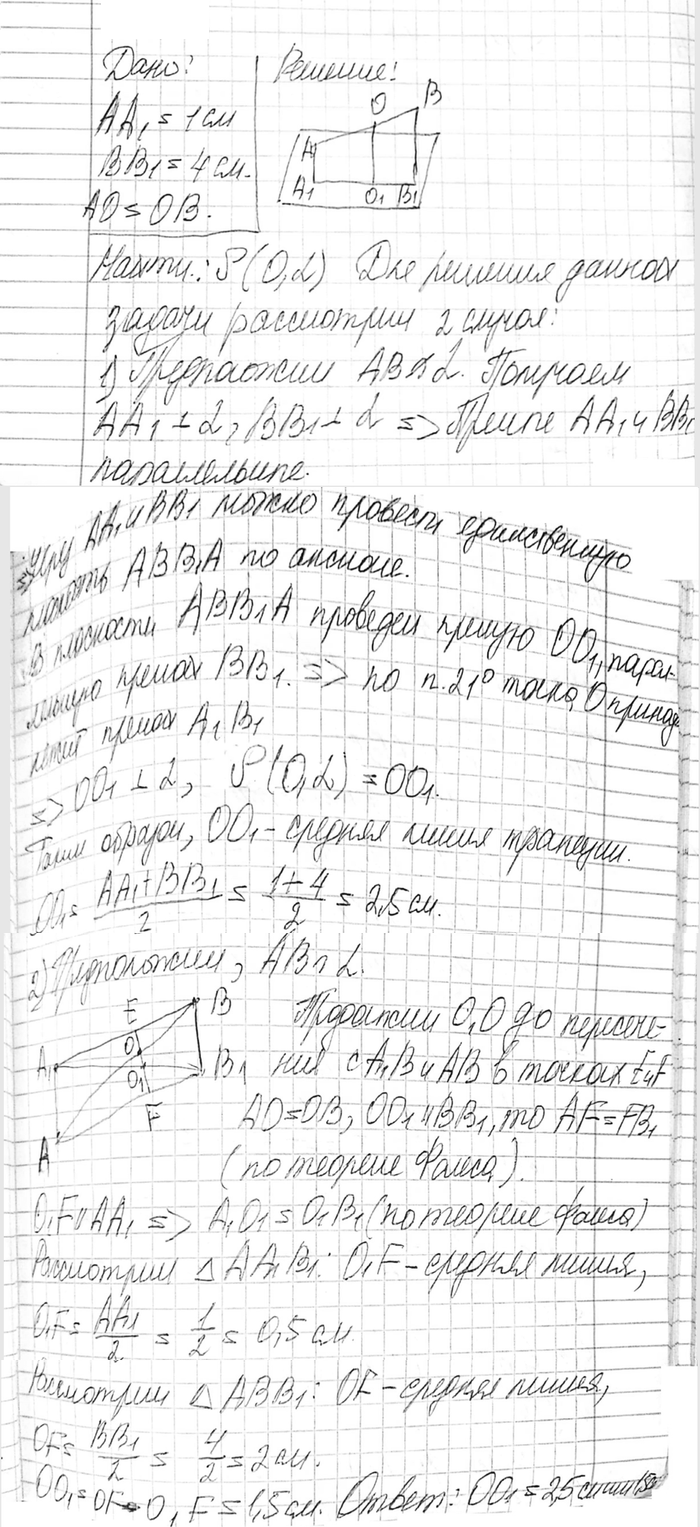 Дано: Решение:
AA₁ = 1 см
BB₁ = 4 см.
AO = OB.
O B
A
A₁ O₁ B₁
Найти: ρ(O,α) Для решения данной
задачи рассмотрим 2 случая:
1) Предположим AB∩α. Получаем
AA₁ ⊥ α, BB₁ ⊥ α => Прямые AA₁ и BB₁
параллельные.
=> Чрз AA₁ и BB₁ можно провести единственную
плоскость ABB₁A по аксиоме.
В плоскости ABB₁A проведем прямую OO₁, парал-
лельную прямой BB₁. => по п.21° точка O принад-
лежит прямой A₁B₁
=> OO₁ ⊥ α, ρ(O,α) = OO₁.
Таким образом, OO₁ - средняя линия трапеции.
OO₁ = (AA₁+BB₁)/2 = (1+4)/2 = 2,5 см.
2) Предположим, AB∩α.
E B
O
A₁ O₁ B₁
F
A
Продолжим O₁O до пересече-
ния с A₁B и AB в точках E и F
AO=OB, OO₁ ॥ BB₁, то AF=FB₁
(по теореме Фалеса).
O₁F ॥ AA₁ => A₁O₁ = O₁B₁ (по теореме Фалеса)
Рассмотрим △ AA₁B₁: O₁F - средняя линия,
O₁F = AA₁/2 = 1/2 = 0,5 см
Рассмотрим △ ABB₁: OF - средняя линия,
OF = BB₁/2 = 4/2 = 2 см.
OO₁ = OF - O₁F = 1,5 см. Ответ: OO₁ = 2,5 см или 1,5см